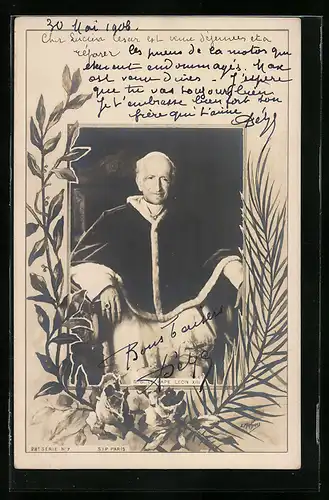 30 Mai 1903
Cher Lucien César est venu déjeuner et a
réparer les pneus de la motos qui
étaient endommagés. Max
est venu dîner. J'espère
que tu vas toujours bien
Je t'embrasse bien fort ton
frère qui t'aime
Bons baisers
PAPE LEON XIII
PGT SERIE N° 7
SIP PARIS